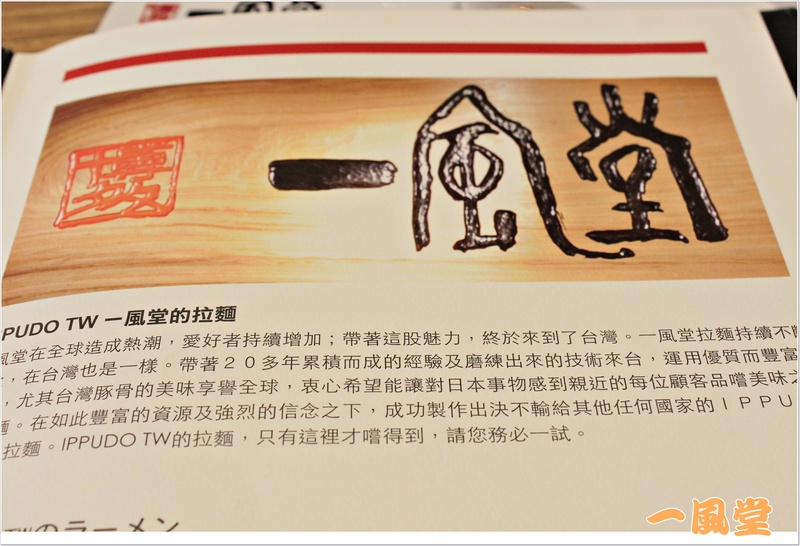 一風堂
IPPUDO TW 一風堂的拉麵
風堂在全球造成熱潮，愛好者持續增加；帶著這股魅力，終於來到了台灣。一風堂拉麵持續不斷
，在台灣也是一樣。帶著２０多年累積而成的經驗及磨練出來的技術來台，運用優質而豐富
，尤其台灣豚骨的美味享譽全球，衷心希望能讓對日本事物感到親近的每位顧客品嚐美味之
麵。在如此豐富的資源及強烈的信念之下，成功製作出決不輸給其他任何國家的ＩＰＰＵ
拉麵。IPPUDO TW的拉麵，只有這裡才嚐得到，請您務必一試。
TWのラーメン
一風堂